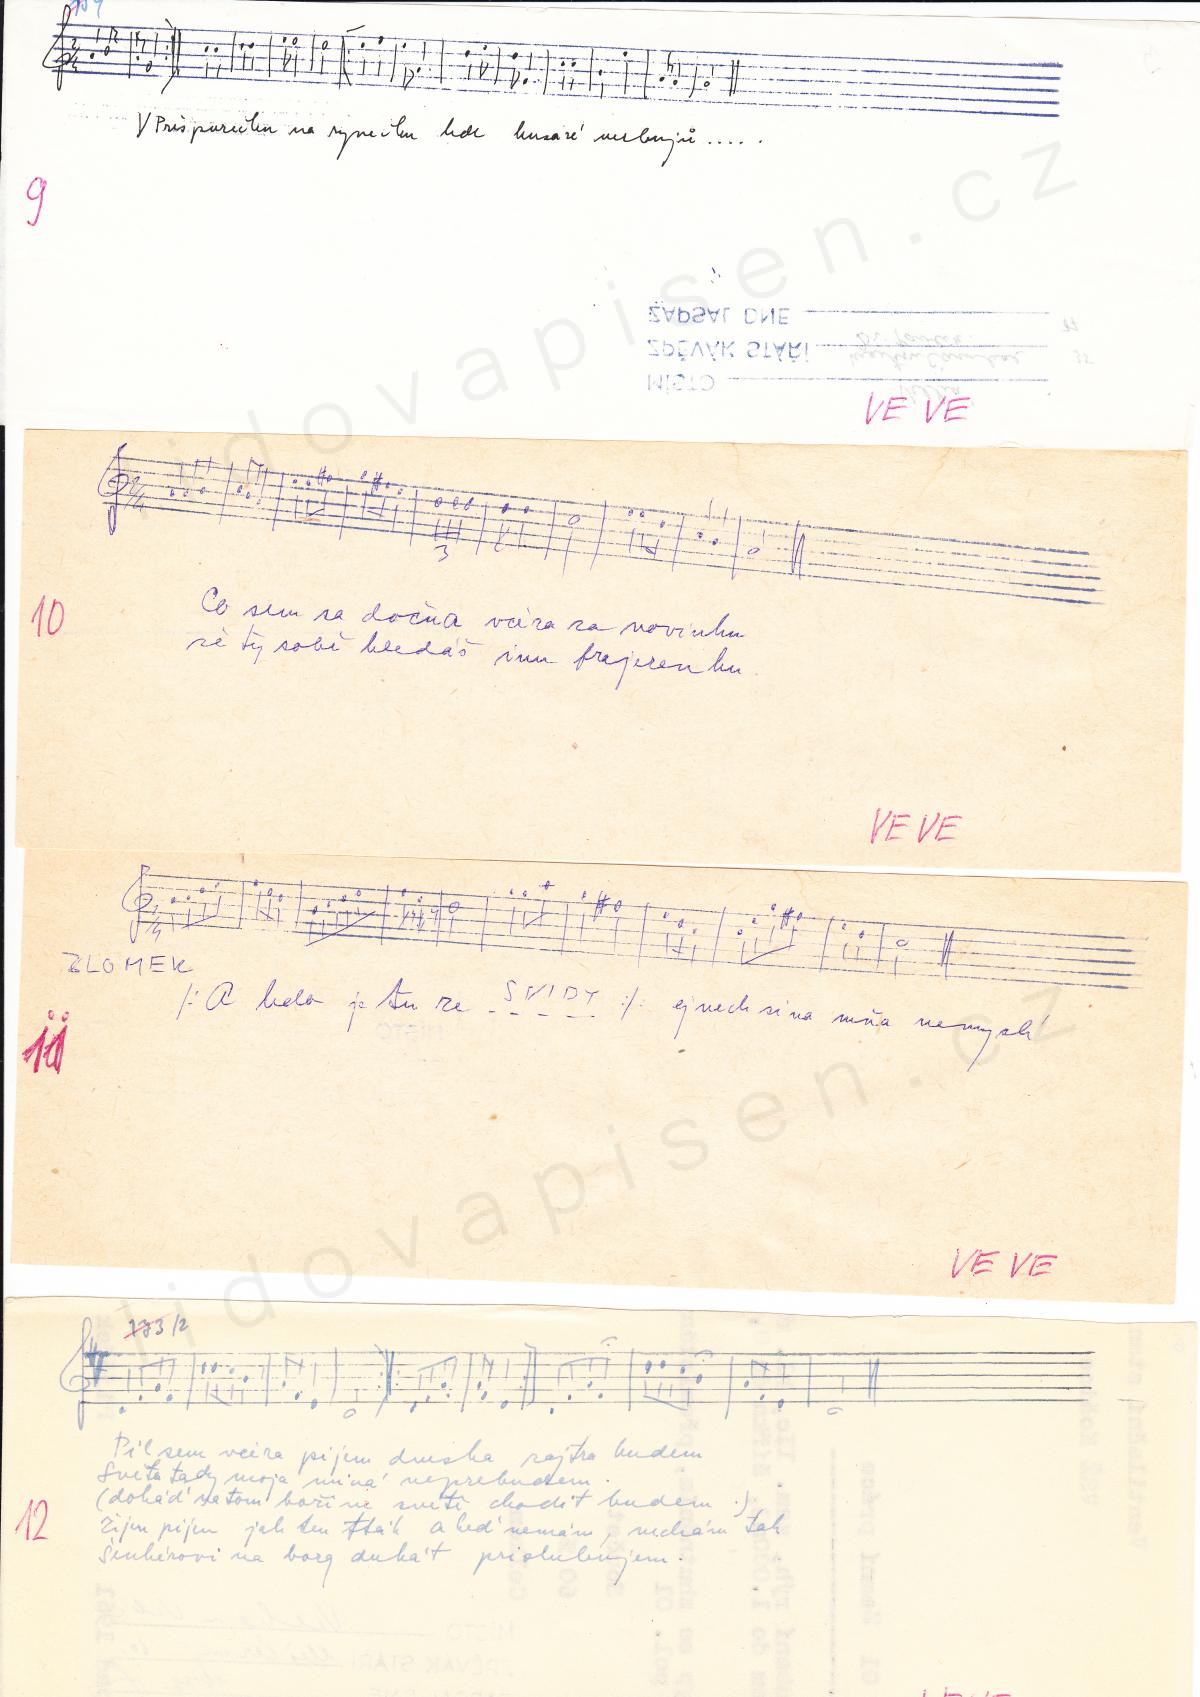 V Prešpurečku na rynečku kde husaré verbujú .....
9
ZAPSAL DNE
ZPĚVÁK STÁŘÍ
MÍSTO
VE VE
Co sem sa dočúa včéra za novinku
10
že ty sobě hledáš inu frajerenku.
VE VE
ZLOMEK
/: A kdo je tu ze SVIDY :/: ej nech si na mňa nemyslí
11
VE VE
173/2
Pil sem včéra pijem dneska zajtra budem
Světa tady moja miná neprebudem.
(dokáď na tom božím světě chodit budem :/)
12
žijem pijem jak ten pták A keď nemám, nechám tak
Šenkérovi na borg dukát prislubujem.
MÍSTO
ZPĚVÁK STÁŘÍ
VE VE
lidovapisen.cz
lidovapisen.cz